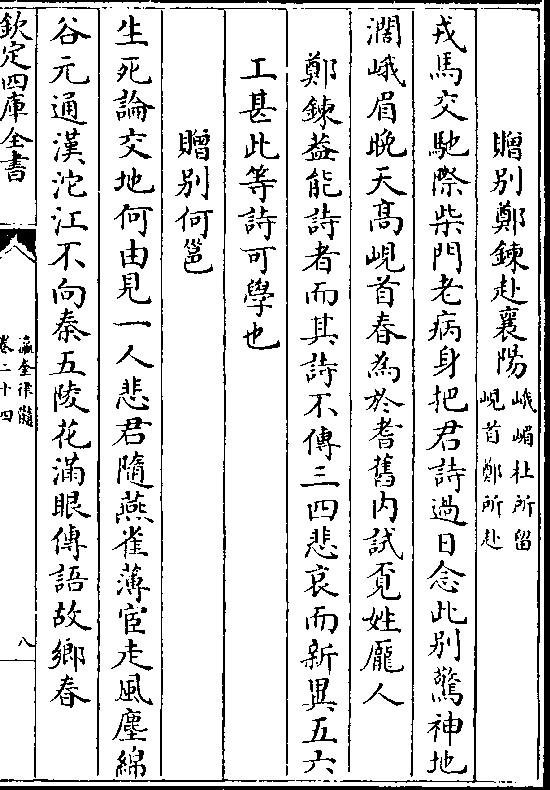 贈别鄭鍊赴襄陽
峨嵋杜所留
峴首鄭所赴
戎馬交馳際柴門老病身把君詩過日念此别驚神地
濶峨眉晚天髙峴首春為於耆舊内試覓姓龎人
鄭鍊葢能詩者而其詩不傳三四悲哀而新異五六
工甚此等詩可學也
贈别何邕
生死論交地何由見一人悲君隨燕雀薄宦走風塵綿
谷元通漢沱江不向秦五陵花滿眼傳語故鄉春
欽定四庫全書
瀛奎律髓
卷二十四
八